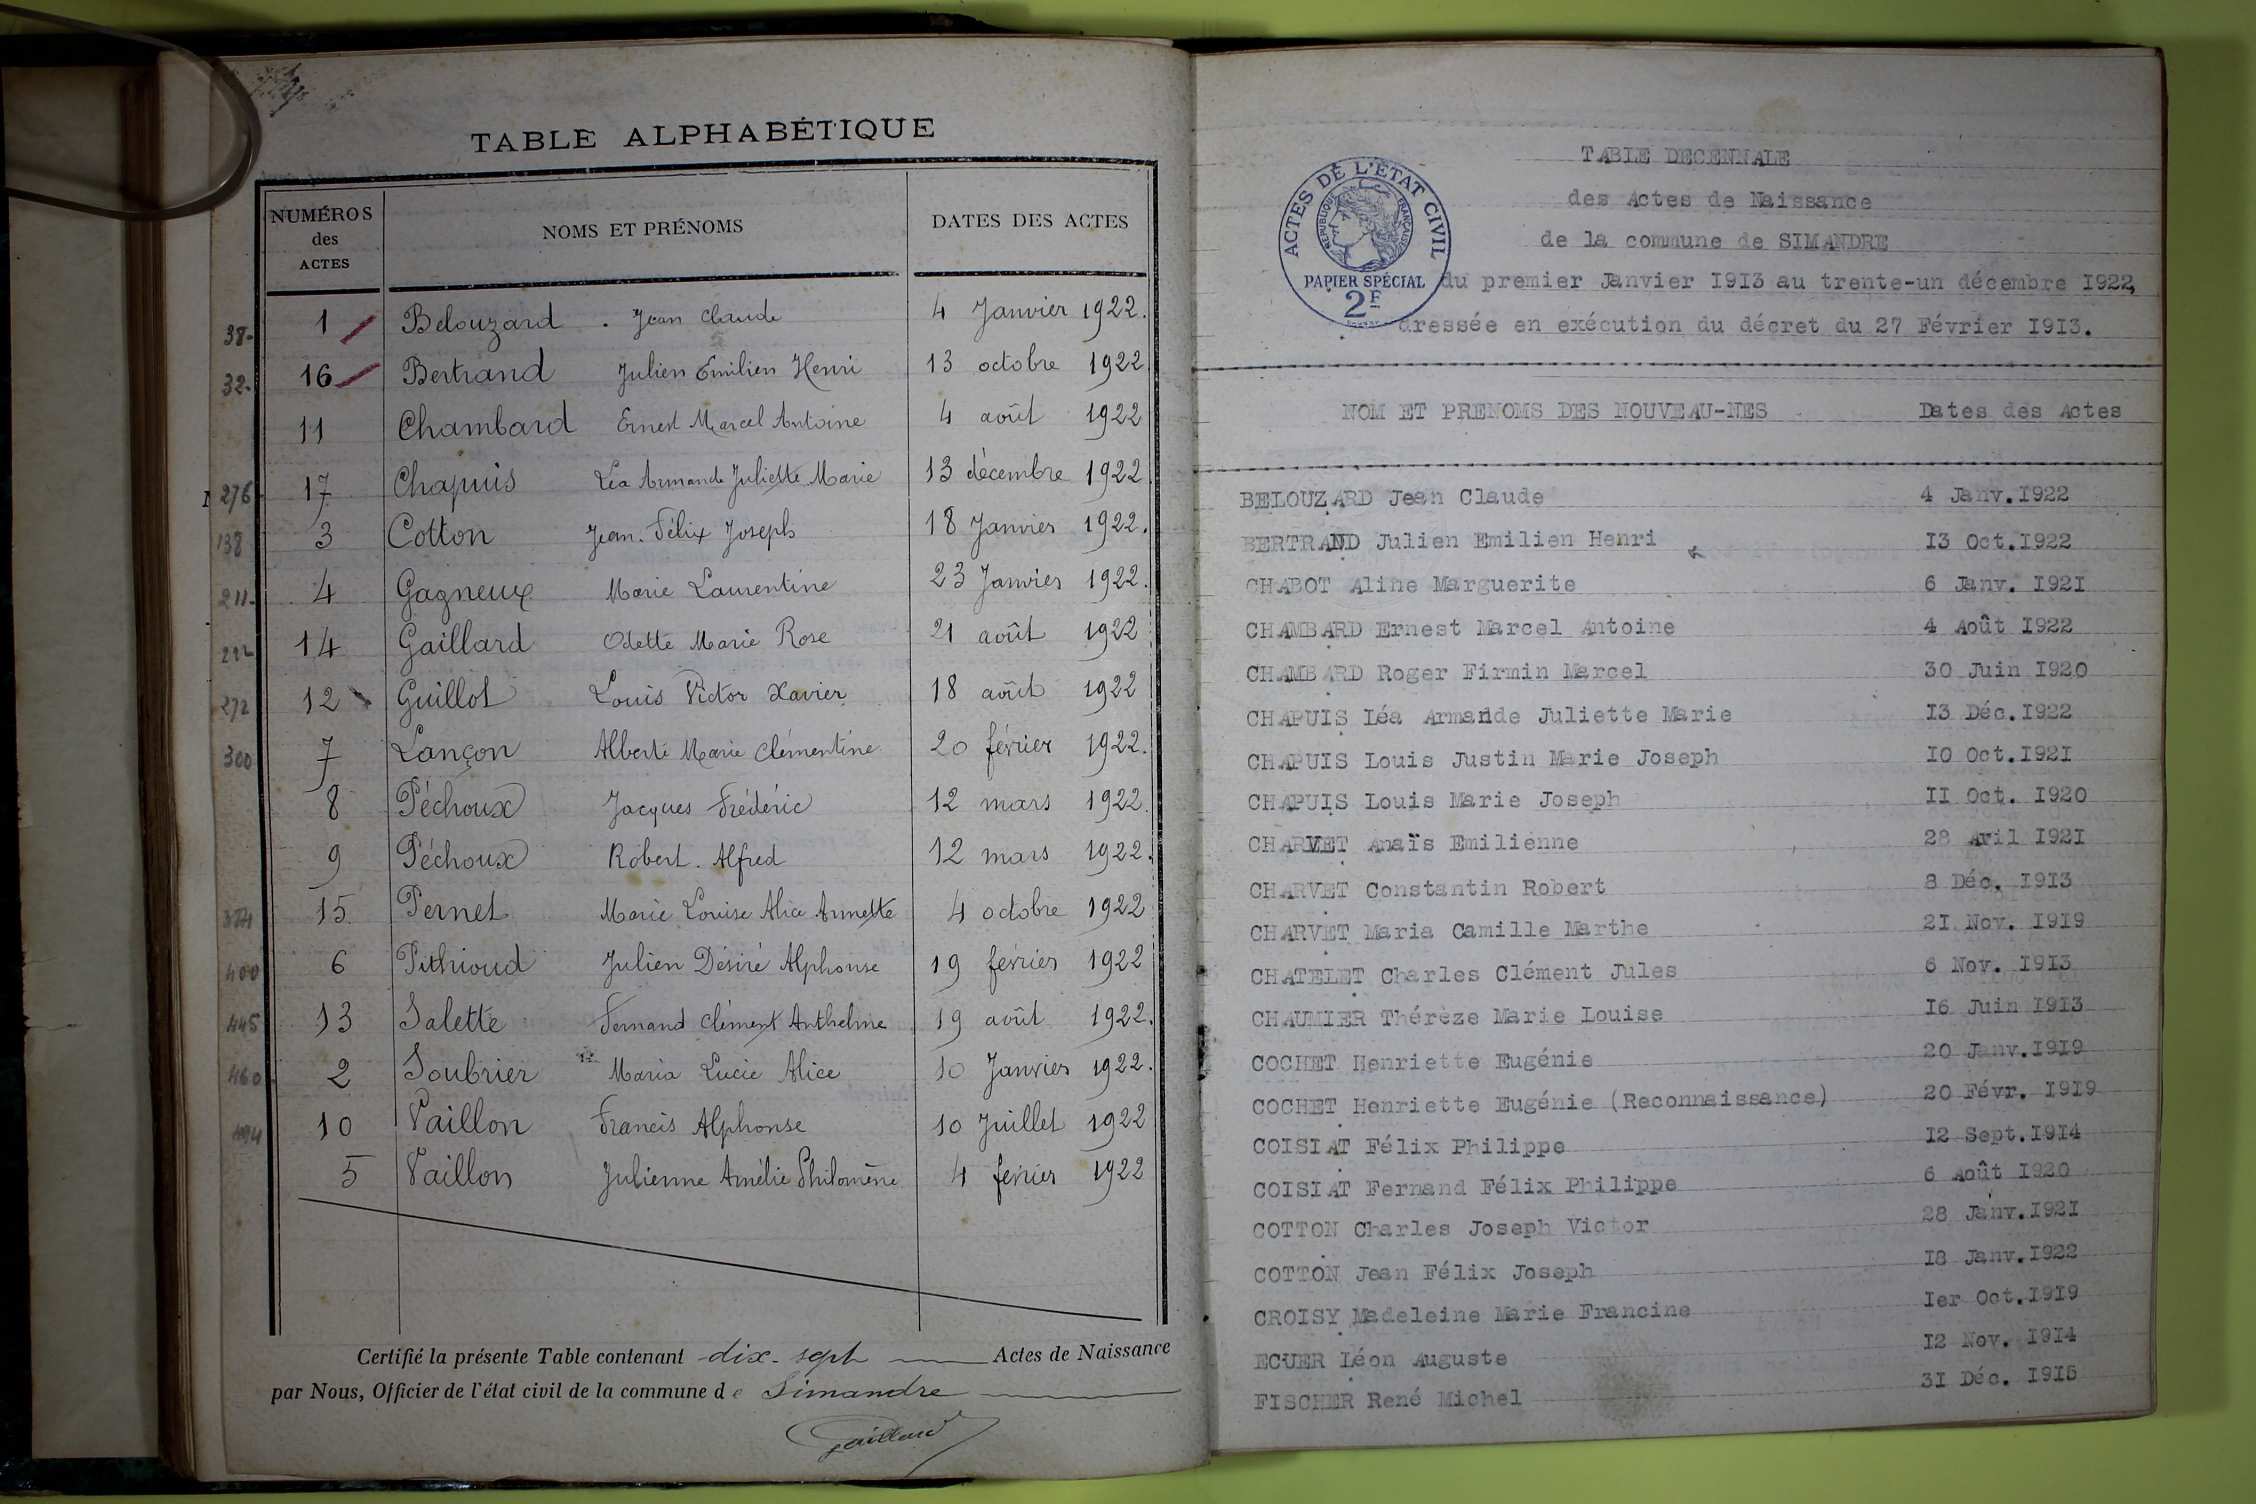 TABLE ALPHABÉTIQUE
NUMÉROS des ACTES NOMS ET PRÉNOMS DATES DES ACTES
38. 1 Belouzard Jean Claude 4 Janvier 1922.
32. 16 Bertrand Julien Emilien Henri 13 octobre 1922
11 Chambard Ernest Marcel Antoine 4 août 1922
276 17 Chapuis Léa Armande Juliette Marie 13 décembre 1922
138 3 Cotton Jean Félix Joseph 18 Janvier 1922.
211. 4 Gagneux Marie Laurentine 23 Janvier 1922.
14 Gaillard Odette Marie Rose 21 août 1922
272 12 Guillot Louis Victor Xavier 18 août 1922
300 7 Lançon Alberte Marie Clémentine 20 février 1922.
8 Péchoux Jacques Frédéric 12 mars 1922.
9 Péchoux Robert Alfred 12 mars 1922.
15 Pernet Marie Louise Alice Annette 4 octobre 1922
400 6 Pithioud Julien Désiré Alphonse 19 février 1922
445 13 Salette Fernand Clément Anthelme 19 août 1922.
460 2 Soubrier Maria Lucie Alice 10 Janvier 1922.
494 10 Vaillon Francis Alphonse 10 Juillet 1922
5 Vaillon Julienne Amélie Philomène 4 février 1922
Certifié la présente Table contenant dix-sept Actes de Naissance
par Nous, Officier de l'état civil de la commune de Simandre
Gaillard
ACTES DE L'ÉTAT CIVIL
RÉPUBLIQUE FRANÇAISE
PAPIER SPÉCIAL
2F
TABLE DECENNALE
des Actes de Naissance
de la commune de SIMANDRE
du premier Janvier 1913 au trente-un décembre 1922,
dressée en exécution du décret du 27 Février 1913.
NOM ET PRENOMS DES NOUVEAU-NES Dates des Actes
BELOUZARD Jean Claude 4 Janv. 1922
BERTRAND Julien Emilien Henri 13 Oct. 1922
CHABOT Aline Marguerite 6 Janv. 1921
CHAMBARD Ernest Marcel Antoine 4 Août 1922
CHAMBARD Roger Firmin Marcel 30 Juin 1920
CHAPUIS Léa Armande Juliette Marie 13 Déc. 1922
CHAPUIS Louis Justin Marie Joseph 10 Oct. 1921
CHAPUIS Louis Marie Joseph 11 Oct. 1920
CHARVET Anaïs Emilienne 28 Avril 1921
CHARVET Constantin Robert 8 Déc. 1913
CHARVET Maria Camille Marthe 21 Nov. 1919
CHATELET Charles Clément Jules 6 Nov. 1913
CHAUMIER Thérèze Marie Louise 16 Juin 1913
COCHET Henriette Eugénie 20 Janv. 1919
COCHET Henriette Eugénie (Reconnaissance) 20 Févr. 1919
COISIAT Félix Philippe 12 Sept. 1914
COISIAT Fernand Félix Philippe 6 Août 1920
COTTON Charles Joseph Victor 28 Janv. 1921
COTTON Jean Félix Joseph 18 Janv. 1922
CROISY Madeleine Marie Francine 1er Oct. 1919
ECUER Léon Auguste 12 Nov. 1914
FISCHER René Michel 31 Déc. 1915